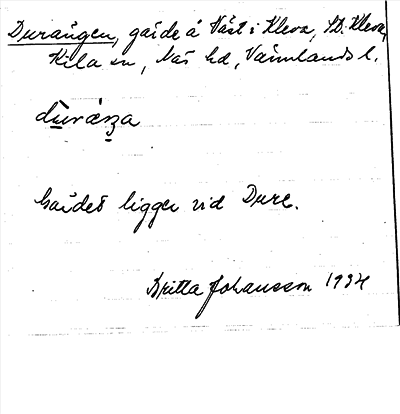 Durängen, gärde å Väst i Kleva, St. Kleva,
Kila sn, Näs hd, Värmlands l.
dùrä́ŋa
Gärdet ligger vid Dure.
Britta Johansson 1934